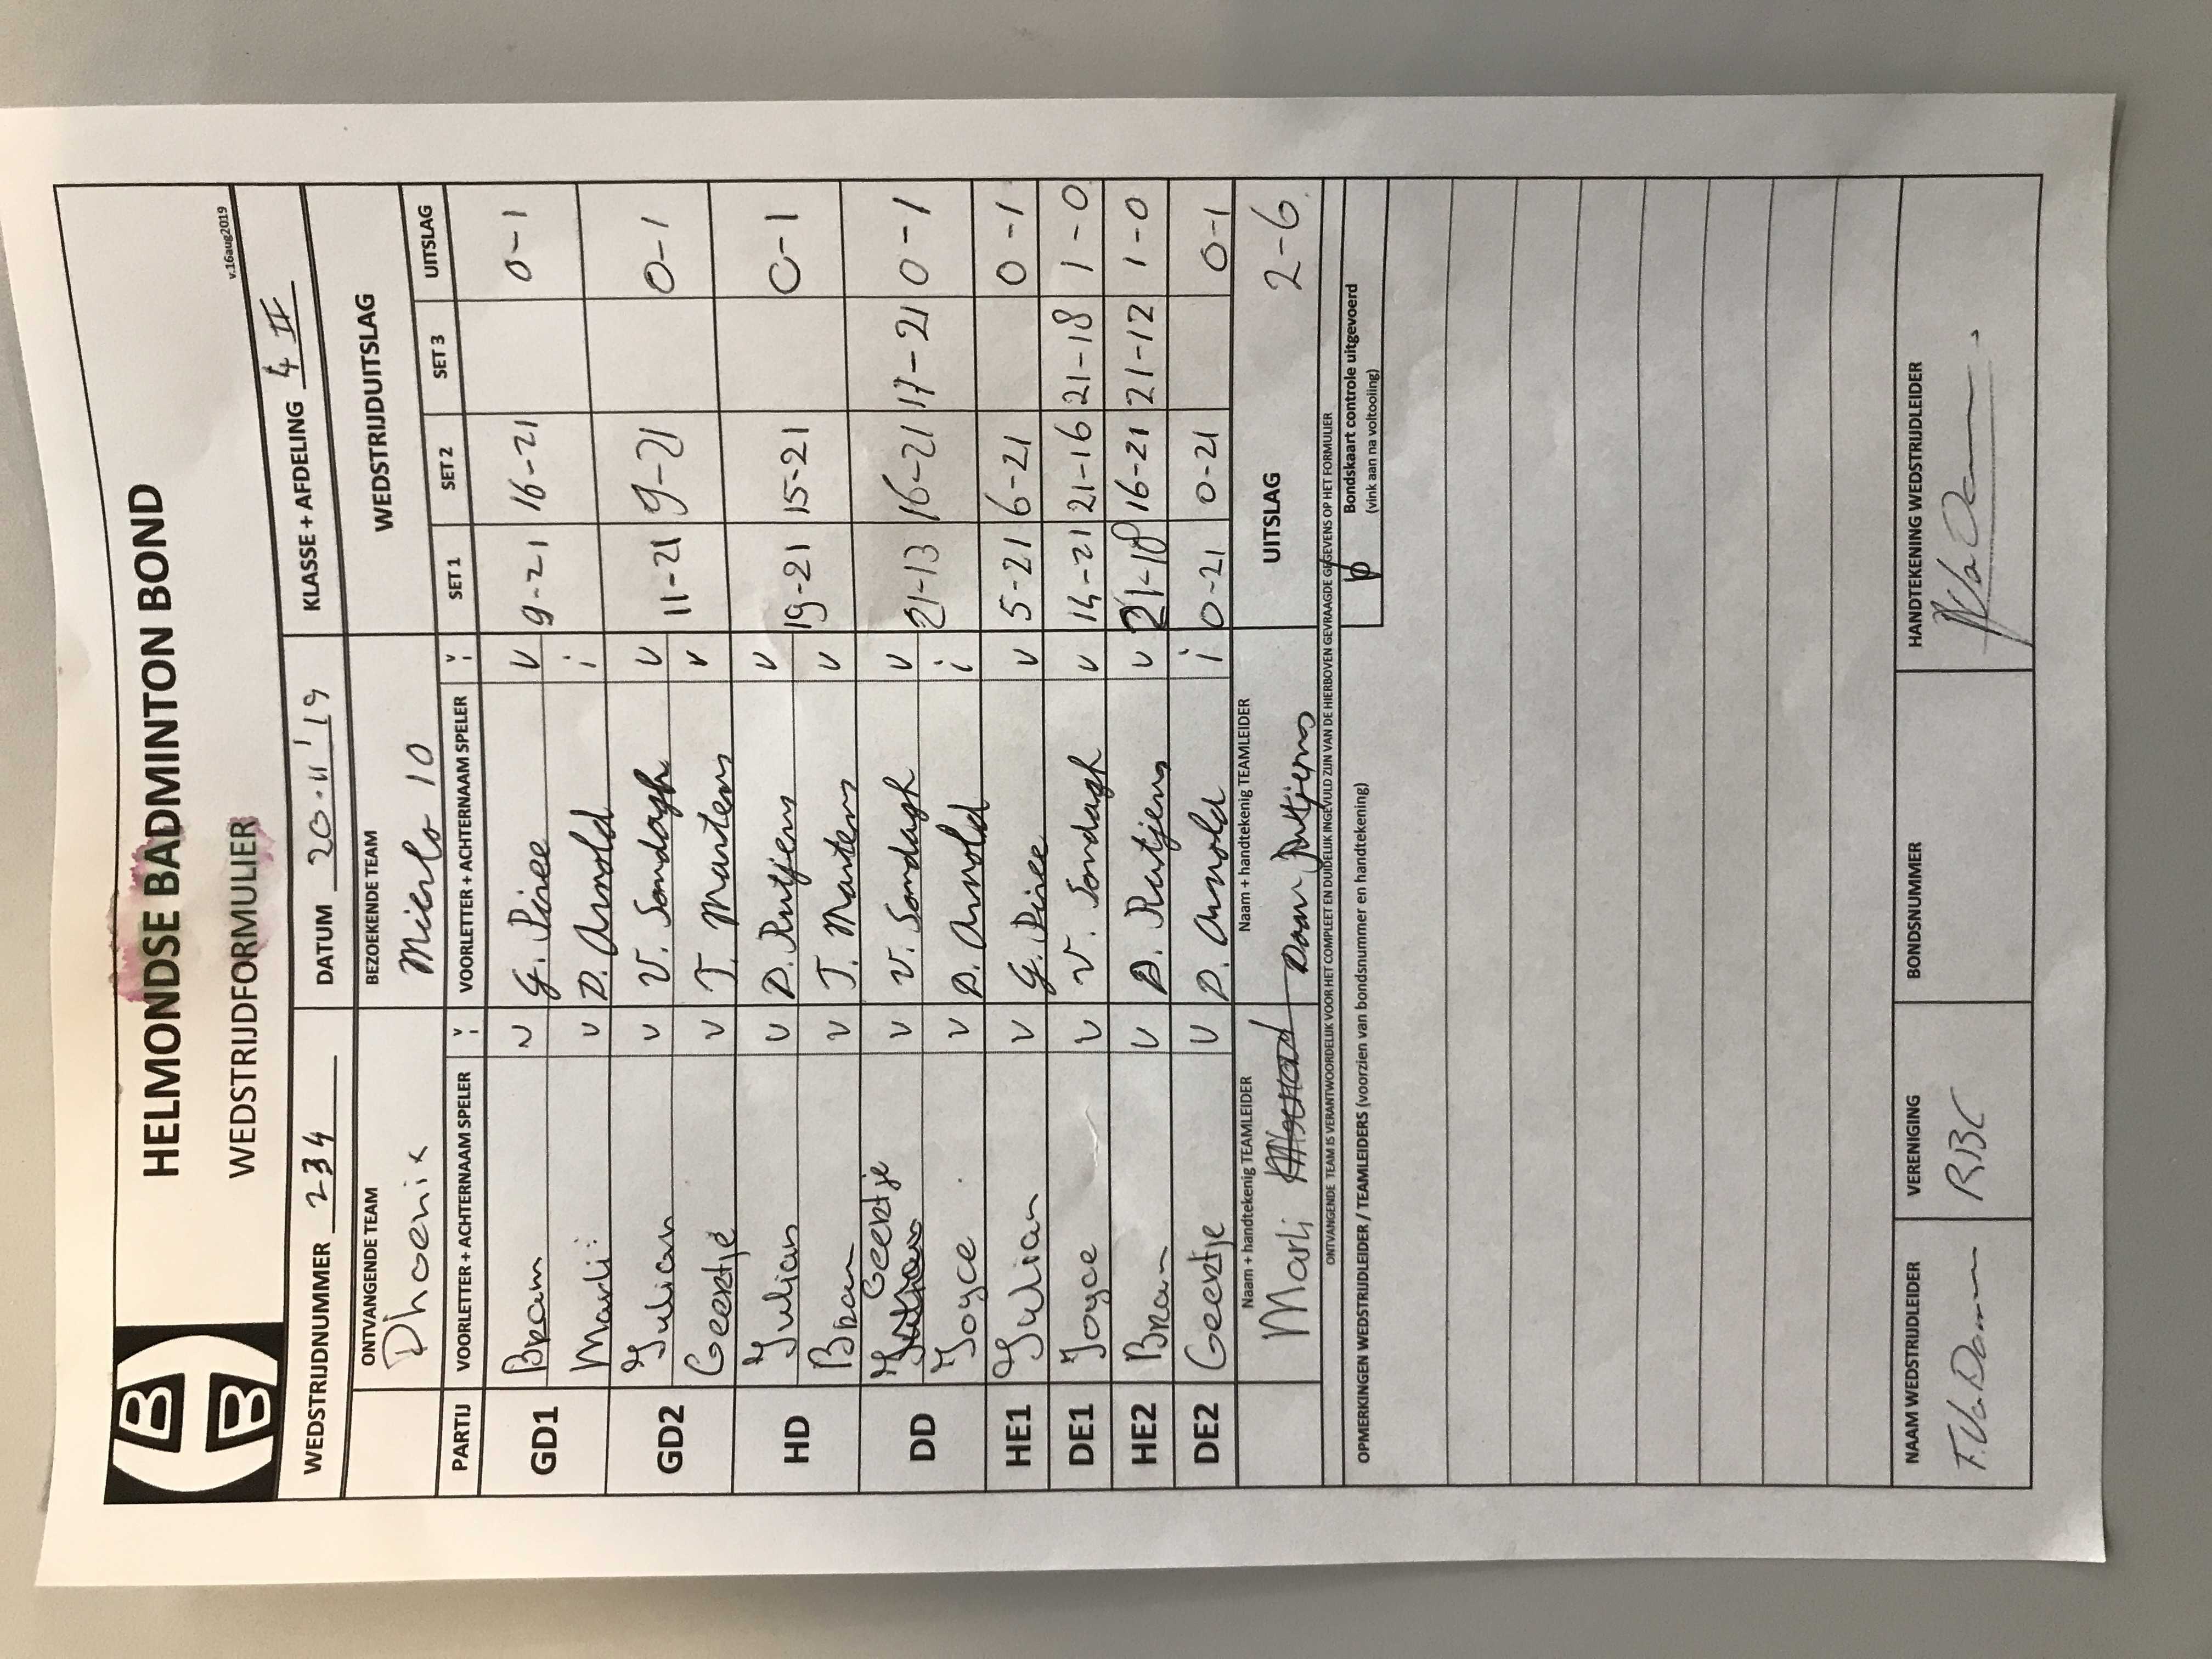 HELMONDSE BADMINTON BOND
WEDSTRIJDFORMULIER
v.16aug2019
WEDSTRIJDNUMMER 234 DATUM 20-11-'19 KLASSE + AFDELING 4 II
ONTVANGENDE TEAM BEZOEKENDE TEAM WEDSTRIJDUITSLAG
Phoenix Mierlo 10
PARTIJ VOORLETTER + ACHTERNAAM SPELER V/I VOORLETTER + ACHTERNAAM SPELER V/I SET 1 SET 2 SET 3 UITSLAG
GD1 Bram V G. Piree V 9-21 16-21 0-1
Marli V D. Arnold i
GD2 Julian V V. Sondagh V 11-21 9-21 0-1
Geertje V T. Martens V
HD Julian V D. Rutjens V 19-21 15-21 0-1
Bram V T. Martens V
DD Geertje V V. Sondagh V 21-13 16-21 17-21 0-1
Joyce V D. Arnold i
HE1 Julian V G. Piree V 5-21 6-21 0-1
DE1 Joyce V V. Sondagh V 14-21 21-16 21-18 1-0
HE2 Bram V D. Rutjens V 21-18 16-21 21-12 1-0
DE2 Geertje V D. Arnold i 0-21 0-21 0-1
Naam + handtekenig TEAMLEIDER Naam + handtekenig TEAMLEIDER UITSLAG 2-6
Marli Daan Rutjens
ONTVANGENDE TEAM IS VERANTWOORDELIJK VOOR HET COMPLEET EN DUIDELIJK INGEVULD ZIJN VAN DE HIERBOVEN GEVRAAGDE GEGEVENS OP HET FORMULIER
OPMERKINGEN WEDSTRIJDLEIDER / TEAMLEIDERS (voorzien van bondsnummer en handtekening)
Bondskaart controle uitgevoerd
(vink aan na voltooiing)
NAAM WEDSTRIJDLEIDER VERENIGING BONDSNUMMER HANDTEKENING WEDSTRIJDLEIDER
F. Va Damm RBC